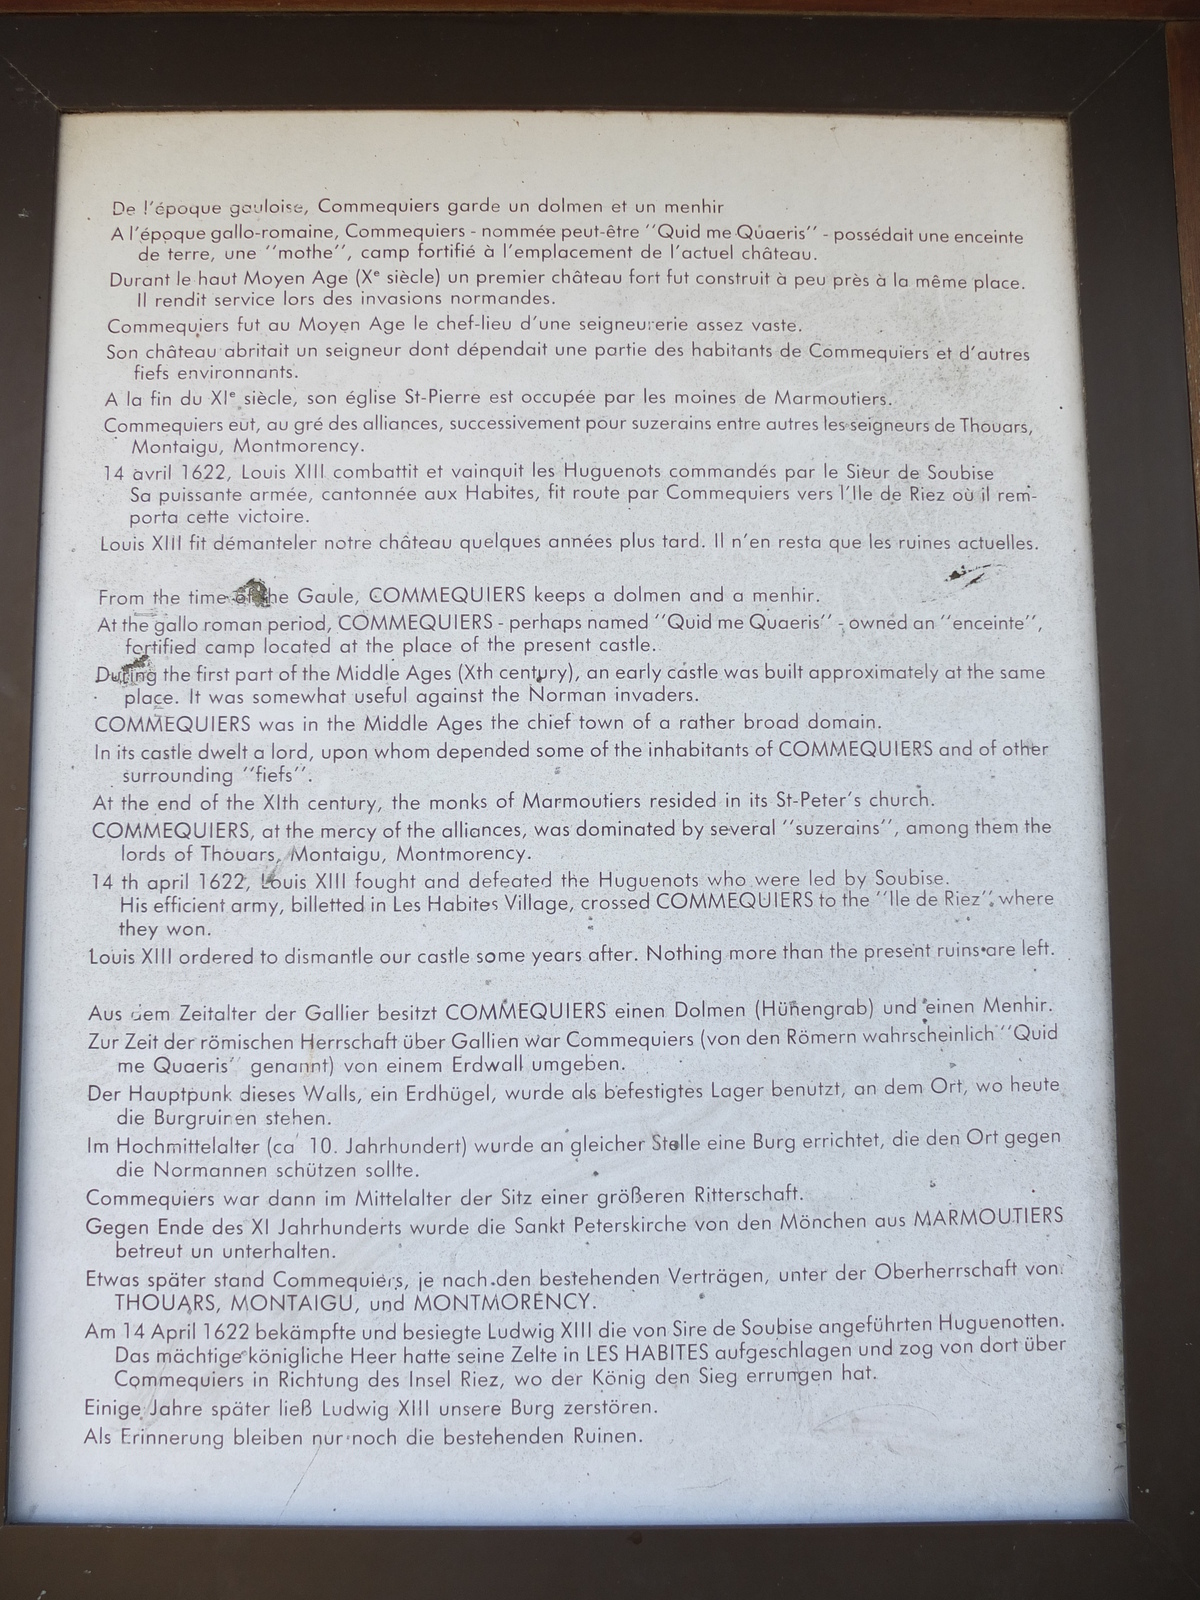 De l'époque gauloise, Commequiers garde un dolmen et un menhir
A l'époque gallo-romaine, Commequiers - nommée peut-être ''Quid me Quaeris'' - possédait une enceinte
de terre, une ''mothe'', camp fortifié à l'emplacement de l'actuel château.
Durant le haut Moyen Age (Xe siècle) un premier château fort fut construit à peu près à la même place.
Il rendit service lors des invasions normandes.
Commequiers fut au Moyen Age le chef-lieu d'une seigneurerie assez vaste.
Son château abritait un seigneur dont dépendait une partie des habitants de Commequiers et d'autres
fiefs environnants.
A la fin du XIe siècle, son église St-Pierre est occupée par les moines de Marmoutiers.
Commequiers eut, au gré des alliances, successivement pour suzerains entre autres les seigneurs de Thouars,
Montaigu, Montmorency.
14 avril 1622, Louis XIII combattit et vainquit les Huguenots commandés par le Sieur de Soubise
Sa puissante armée, cantonnée aux Habites, fit route par Commequiers vers l'Ile de Riez où il rem-
porta cette victoire.
Louis XIII fit démanteler notre château quelques années plus tard. Il n'en resta que les ruines actuelles.
From the time of the Gaule, COMMEQUIERS keeps a dolmen and a menhir.
At the gallo roman period, COMMEQUIERS - perhaps named ''Quid me Quaeris'' - owned an ''enceinte'',
fortified camp located at the place of the present castle.
During the first part of the Middle Ages (Xth century), an early castle was built approximately at the same
place. It was somewhat useful against the Norman invaders.
COMMEQUIERS was in the Middle Ages the chief town of a rather broad domain.
In its castle dwelt a lord, upon whom depended some of the inhabitants of COMMEQUIERS and of other
surrounding ''fiefs''.
At the end of the XIth century, the monks of Marmoutiers resided in its St-Peter's church.
COMMEQUIERS, at the mercy of the alliances, was dominated by several ''suzerains'', among them the
lords of Thouars, Montaigu, Montmorency.
14 th april 1622, Louis XIII fought and defeated the Huguenots who were led by Soubise.
His efficient army, billetted in Les Habites Village, crossed COMMEQUIERS to the ''Ile de Riez'', where
they won.
Louis XIII ordered to dismantle our castle some years after. Nothing more than the present ruins are left.
Aus dem Zeitalter der Gallier besitzt COMMEQUIERS einen Dolmen (Hünengrab) und einen Menhir.
Zur Zeit der römischen Herrschaft über Gallien war Commequiers (von den Römern wahrscheinlich ''Quid
me Quaeris'' genannt) von einem Erdwall umgeben.
Der Hauptpunk dieses Walls, ein Erdhügel, wurde als befestigtes Lager benutzt, an dem Ort, wo heute
die Burgruinen stehen.
Im Hochmittelalter (ca 10. Jahrhundert) wurde an gleicher Stelle eine Burg errichtet, die den Ort gegen
die Normannen schützen sollte.
Commequiers war dann im Mittelalter der Sitz einer größeren Ritterschaft.
Gegen Ende des XI Jahrhunderts wurde die Sankt Peterskirche von den Mönchen aus MARMOUTIERS
betreut un unterhalten.
Etwas später stand Commequiers, je nach den bestehenden Verträgen, unter der Oberherrschaft von:
THOUARS, MONTAIGU, und MONTMORENCY.
Am 14 April 1622 bekämpfte und besiegte Ludwig XIII die von Sire de Soubise angeführten Huguenotten.
Das mächtige königliche Heer hatte seine Zelte in LES HABITES aufgeschlagen und zog von dort über
Commequiers in Richtung des Insel Riez, wo der König den Sieg errungen hat.
Einige Jahre später ließ Ludwig XIII unsere Burg zerstören.
Als Erinnerung bleiben nur noch die bestehenden Ruinen.